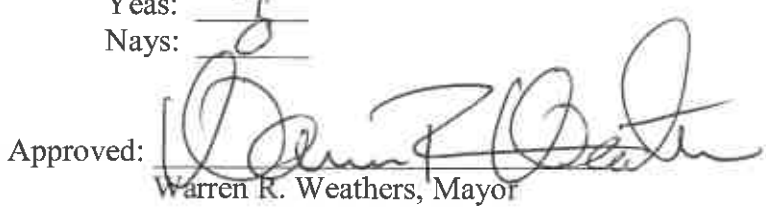 Yeas:
Nays: 0
Approved: Warren R Weathers
Warren R. Weathers, Mayor